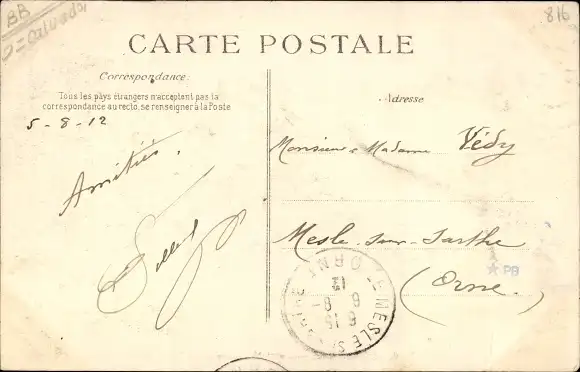 BB
D=Calvados
816
CARTE POSTALE
Correspondance:
Tous les pays étrangers n'acceptent pas la
correspondance au recto, se renseigner à la Poste
5-8-12
Amitiés.
Adresse
Monsieur & Madame Védy
Mesle-sur-Sarthe
(Orne.)
PB
LE MESLE S/ SARTHE ORNE
6-8
12